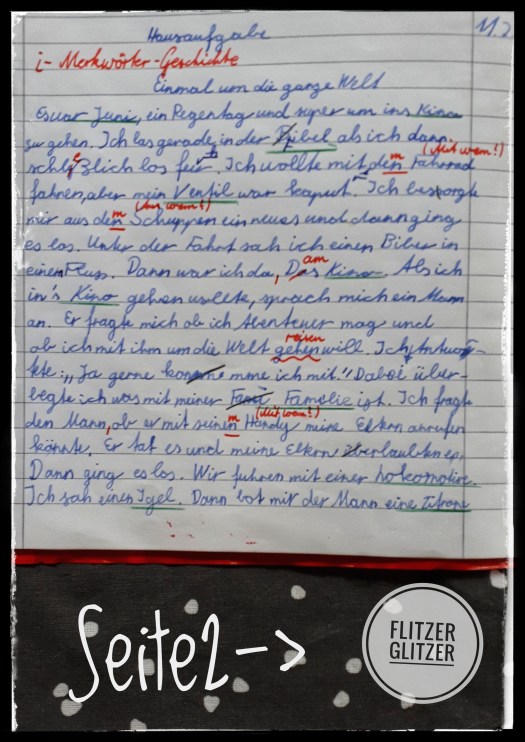 Hausaufgabe
11.2
i-Merkwörter-Geschichte
Einmal um die ganze Welt
Es war Juni, ein Regentag und super um ins Kino
zu gehen. Ich las gerade in der Bibel als ich dann
(Mit wem!)
schließlich los fuhr. Ich wollte mit dem Fahrrad
fahren, aber mein Ventil war kaputt. Ich besorgte
(Aus wem!)
mir aus dem Schuppen ein neues und dann ging
es los. Unter der Fahrt sah ich einen Biber in
einem Fluss. Dann war ich da, am Kino. Als ich
in's Kino gehen wollte, sprach mich ein Mann
an. Er fragte mich ob ich Abenteuer mag und
reisen
ob ich mit ihm um die Welt gehen will. Ich Antwor-
tete: "Ja gerne komme ich mit." Dabei über-
legte ich was mit meiner Familie ist. Ich fragte
(Mit wem!)
den Mann, ob er mit seinem Handy meine Eltern anrufen
könnte. Er tat es und meine Eltern erlaubten es.
Dann ging es los. Wir fuhren mit einer Lokomotive.
Ich sah einen Igel. Dann bot mir der Mann eine Zitrone
Seite2->
FLITZER
GLITZER